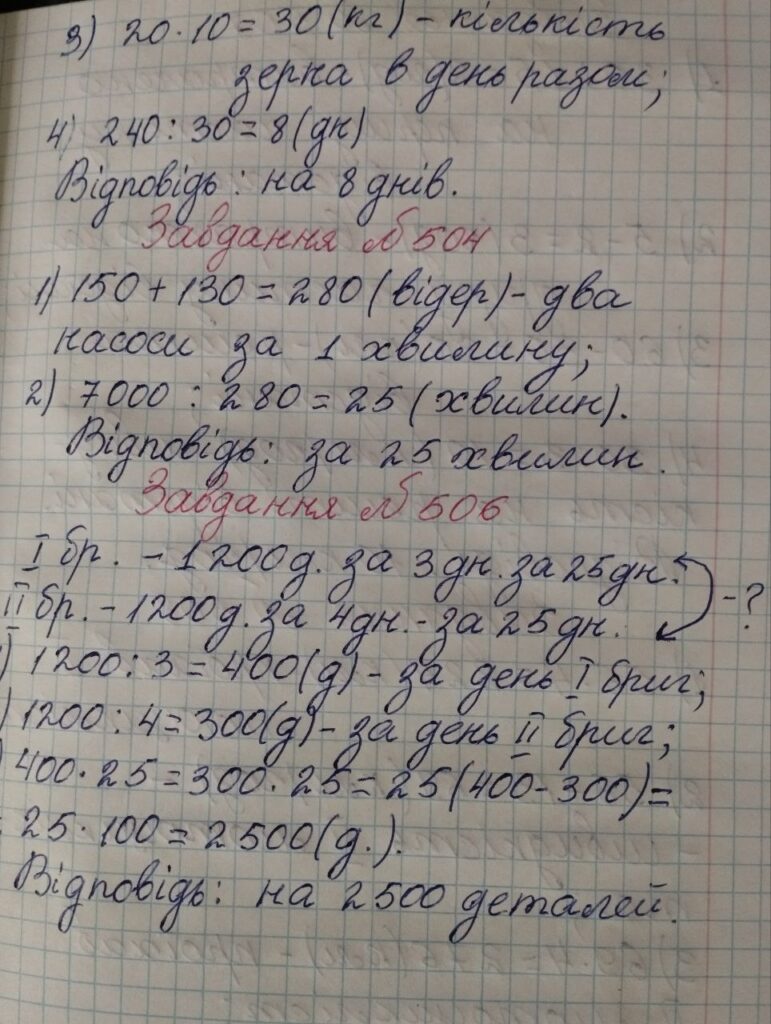 3) 20·10=30(кг) - кількість
зерна в день разом;
4) 240:30=8(дн)
Відповідь: на 8 днів.
Завдання №504
1) 150+130=280(відер)- два
насоси за 1 хвилину;
2) 7000:280=25(хвилин).
Відповідь: за 25 хвилин.
Завдання №506
I бр. - 1200д. за 3дн. за 25дн.
II бр. - 1200д. за 4дн.- за 25дн. -?
) 1200:3=400(д)- за день I бриг;
) 1200:4=300(д)- за день II бриг;
) 400·25=300·25=25(400-300)=
= 25·100=2500(д.).
Відповідь: на 2500 деталей.